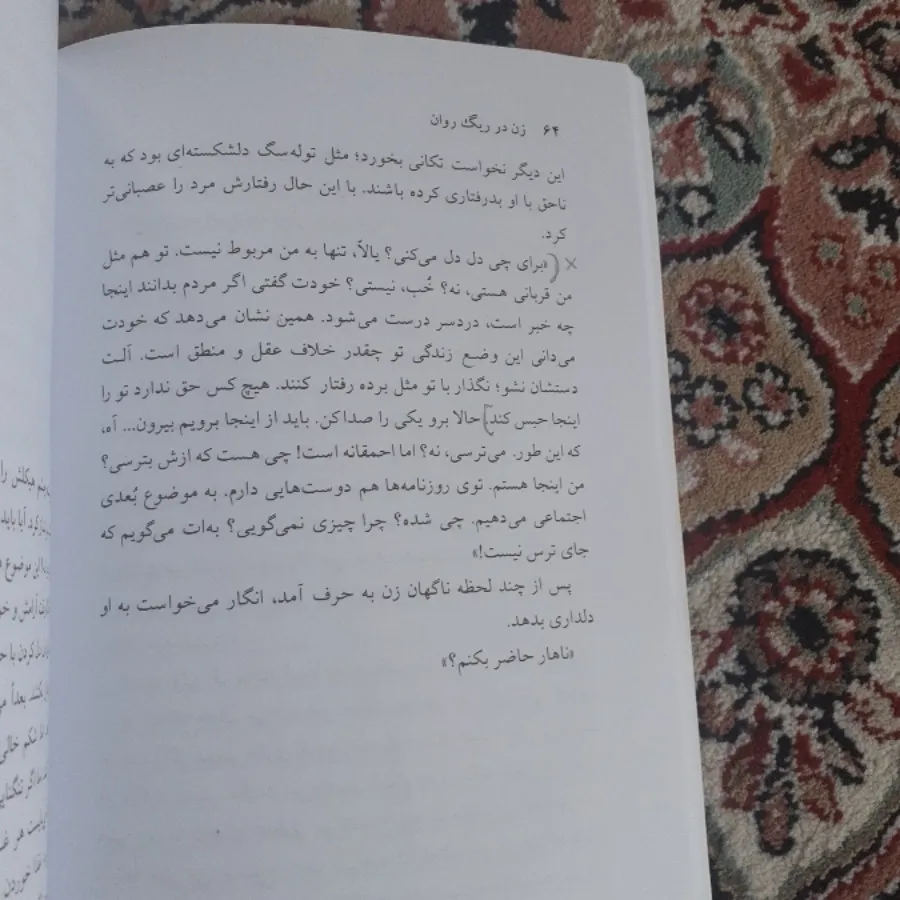 ۶۴ زن در ریگ روان
این دیگر نخواست تکانی بخورد؛ مثل توله‌سگ دلشکسته‌ای بود که به
ناحق با او بدرفتاری کرده باشند. با این حال رفتارش مرد را عصبانی‌تر
کرد.
«برای چی دل دل می‌کنی؟ یالاّ، تنها به من مربوط نیست. تو هم مثل
من قربانی هستی، نه؟ خُب، نیستی؟ خودت گفتی اگر مردم بدانند اینجا
چه خبر است، دردسر درست می‌شود. همین نشان می‌دهد که خودت
می‌دانی این وضع زندگی تو چقدر خلاف عقل و منطق است. آلت
دستشان نشو؛ نگذار با تو مثل برده رفتار کنند. هیچ کس حق ندارد تو را
اینجا حبس کند) حالا برو یکی را صداکن. باید از اینجا برویم بیرون... آه،
که این طور. می‌ترسی، نه؟ اما احمقانه است! چی هست که ازش بترسی؟
من اینجا هستم. توی روزنامه‌ها هم دوست‌هایی دارم. به موضوع بُعدی
اجتماعی می‌دهیم. چی شده؟ چرا چیزی نمی‌گویی؟ به‌ات می‌گویم که
جای ترس نیست!»
پس از چند لحظه ناگهان زن به حرف آمد، انگار می‌خواست به او
دلداری بدهد.
«ناهار حاضر بکنم؟»
هیکلش را
آیا باید
موضوع
آرامش و خو
کردن با ح
کند. بعداً م
شکم خالی
اگر تنگنای
هر
خوردن